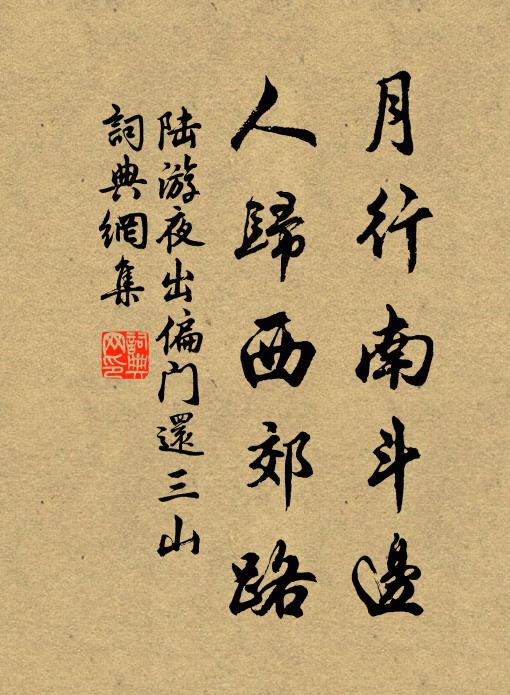 月行南斗邊
人歸西郊路
陆游夜出偏门還三山
詞典網集
詞典網印